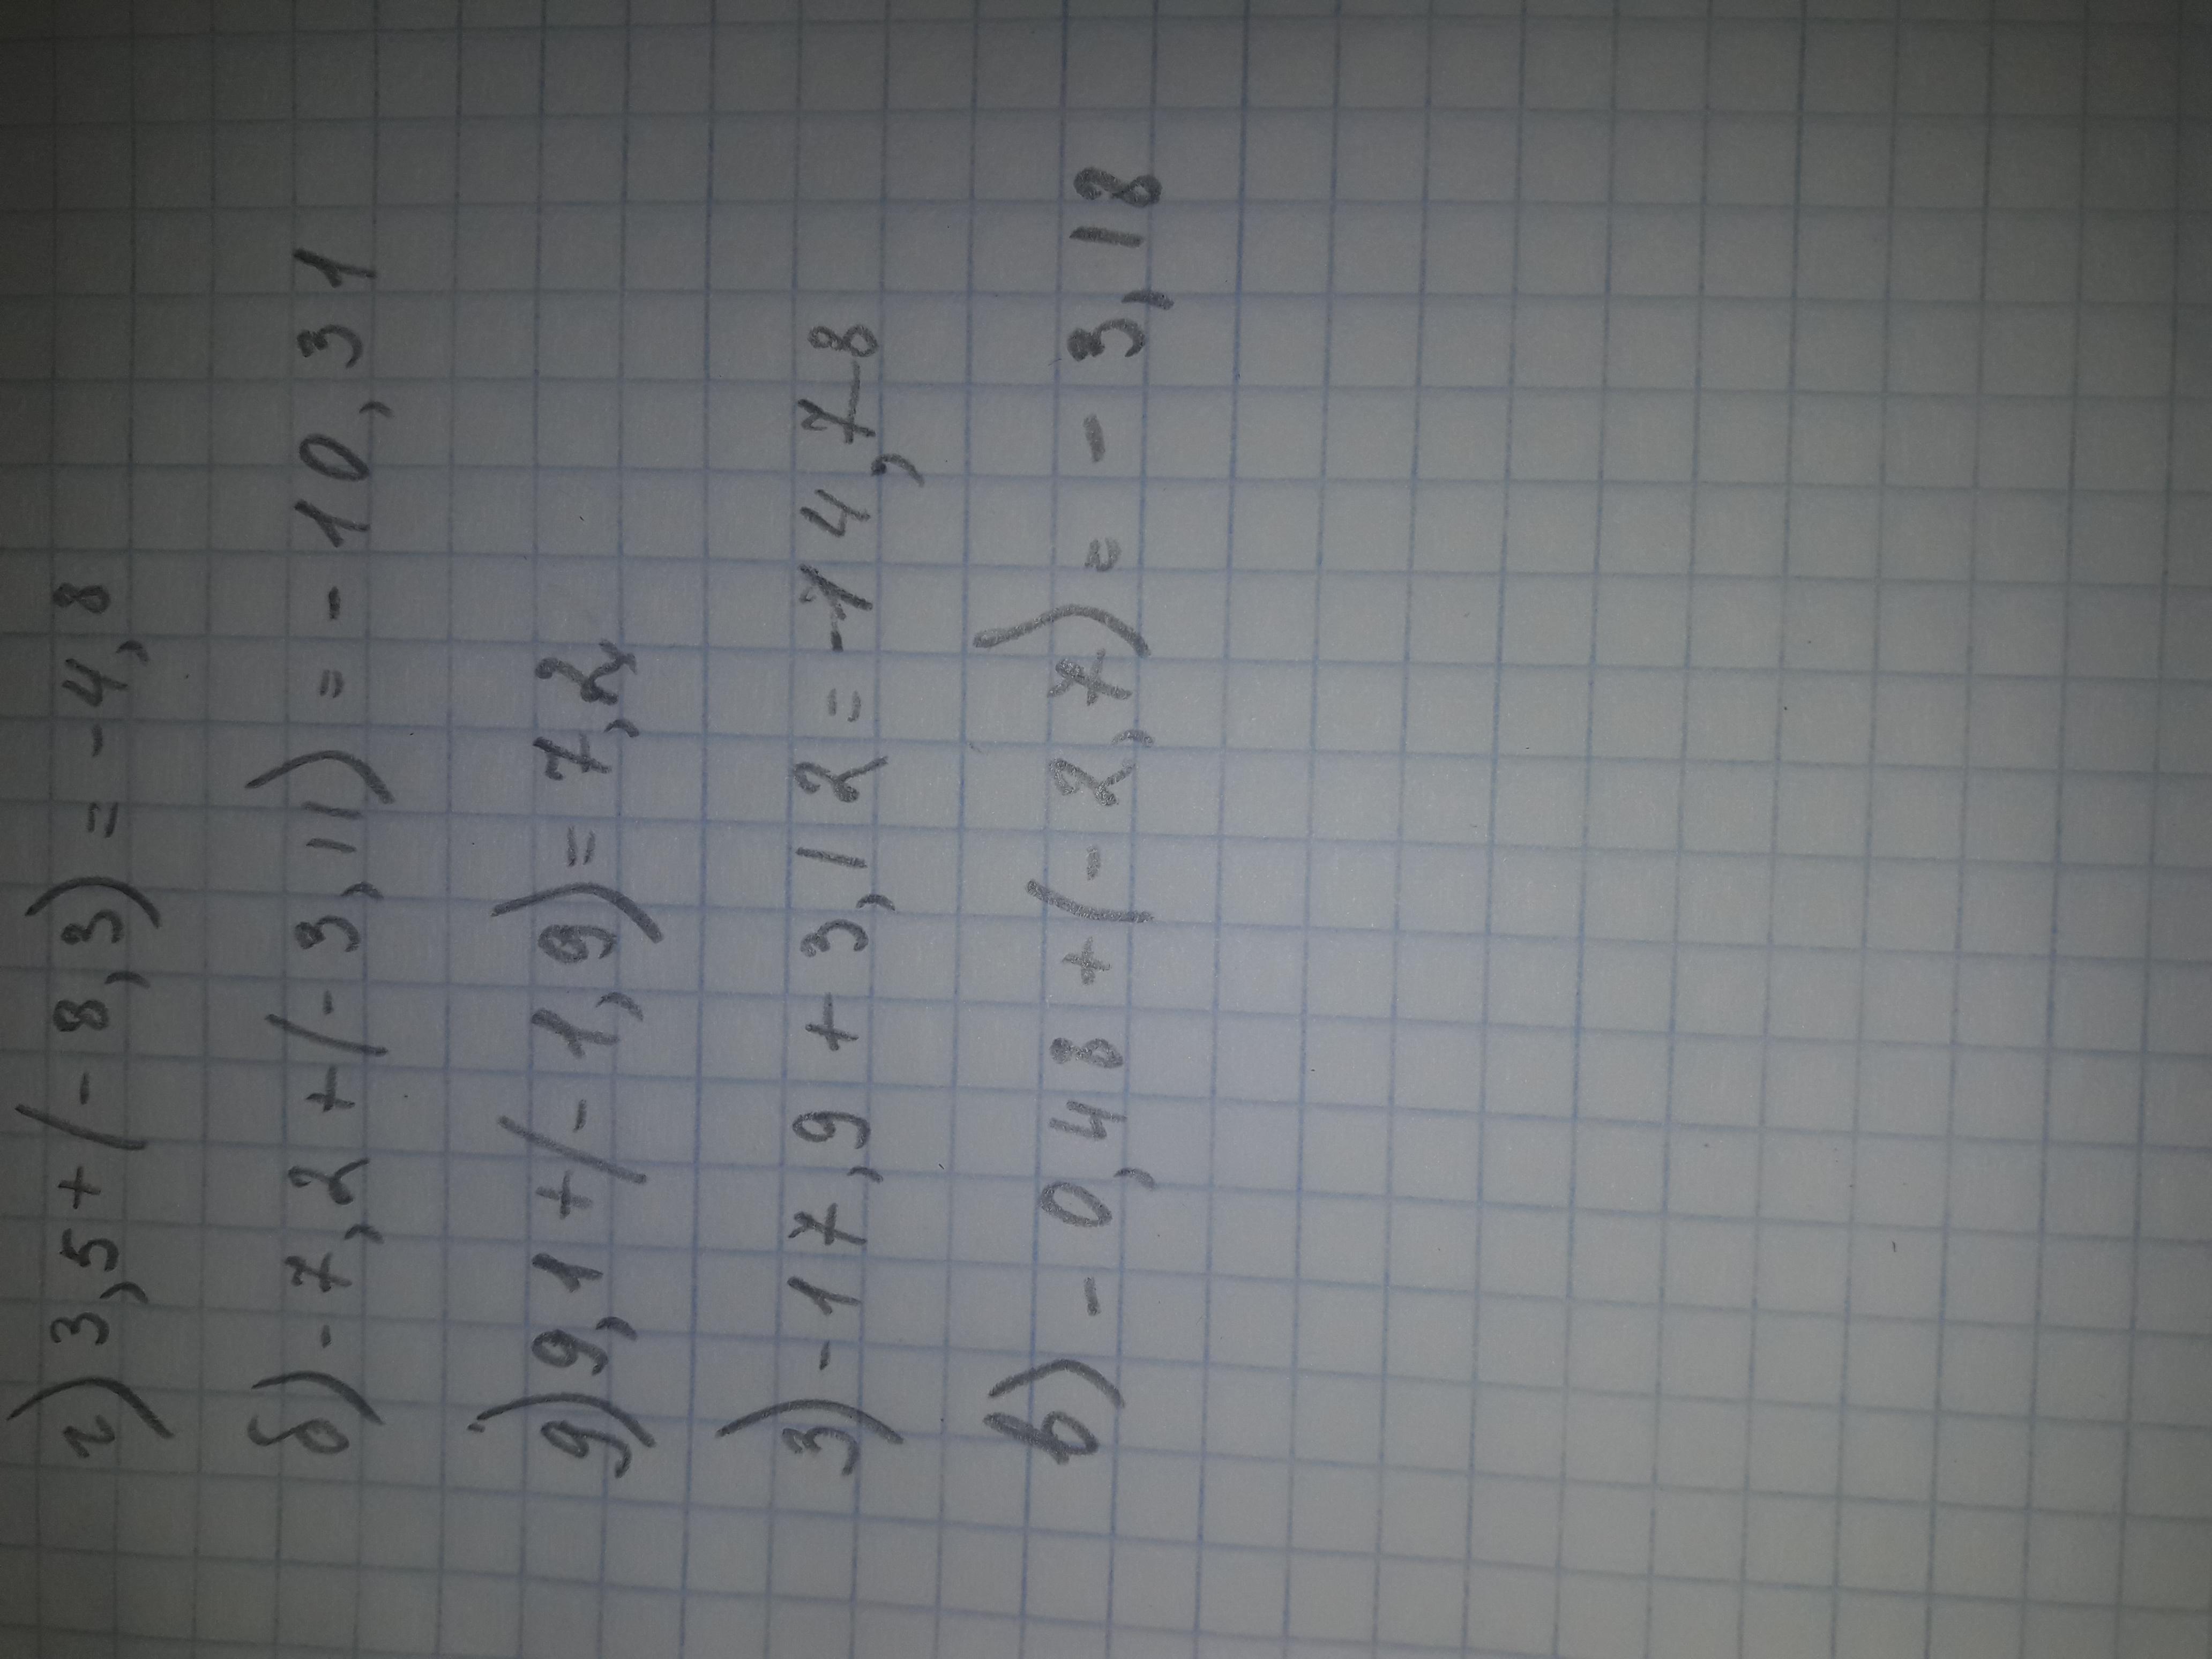 г) 3,5 + (- 8,3) = - 4,8
б) - 7,2 + (- 3,11) = - 10,31
д) 9,1 + (- 1,9) = 7,2
з) - 17,9 + 3,12 = - 14,78
в) - 0,48 + (- 2,7) = - 3,18